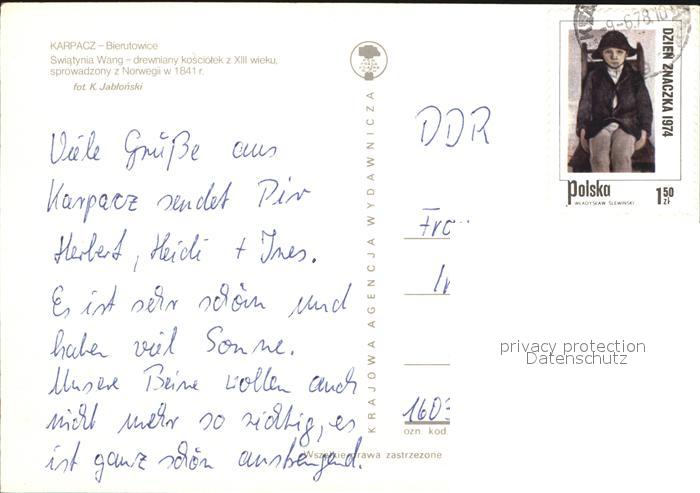 KARPACZ – Bierutowice
Świątynia Wang – drewniany kościółek z XIII wieku,
sprowadzony z Norwegii w 1841 r.
fot. K. Jabłoński
Viele Grüße aus
Karpacz sendet Dir
Herbert, Heidi + Ines.
Es ist sehr schön und
haben viel Sonne.
Unsere Beine wollen auch
nicht mehr so richtig, es
ist ganz schön anstrengend.
KRAJOWA AGENCJA WYDAWNICZA
DDR
1603
ozn. kod.
Wszelkie prawa zastrzeżone
9-6.78.10
DZIEŃ ZNACZKA 1974
Polska
1,50 zł
WŁADYSŁAW ŚLEWIŃSKI
privacy protection
Datenschutz